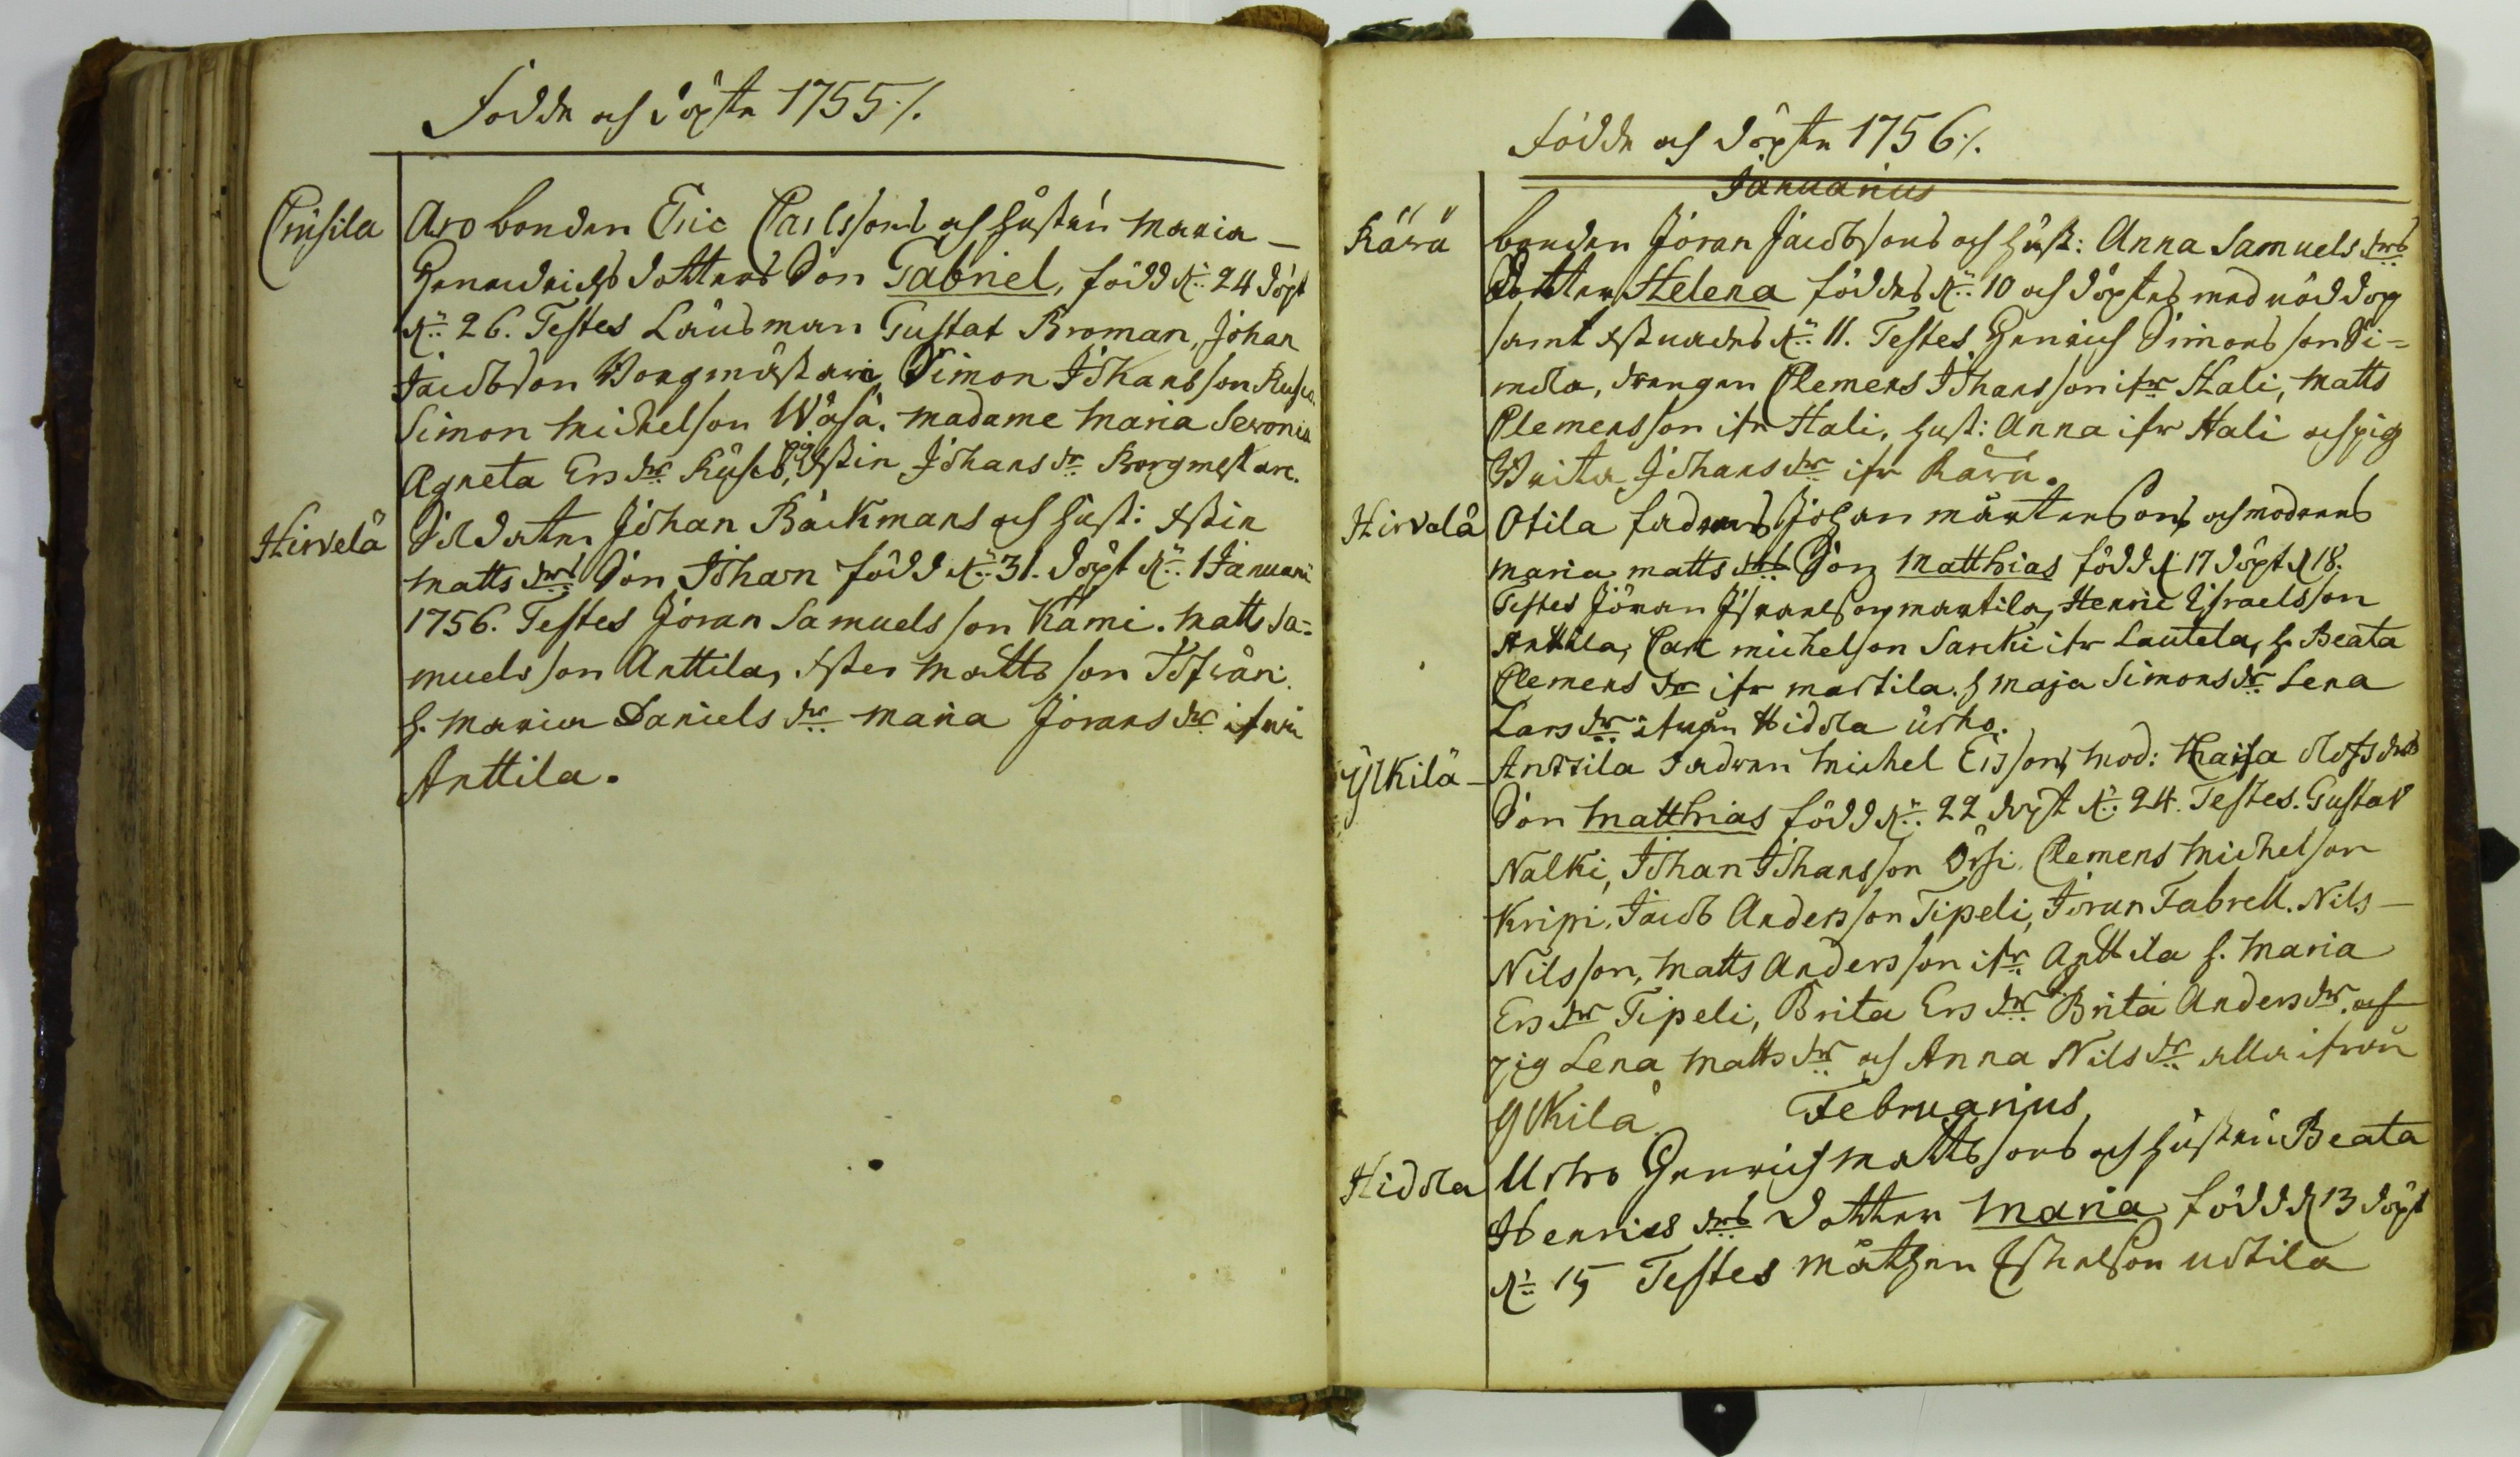 Födde och döpte 1755 ./.
Crusila
Aro bonden Eric Carlssons och hustrun Maria
Henrichsdotters Son Gabriel, född d. 24 döpt
d. 26. Testes Länsman Gustaf Broman, Johan
Jacobson Borgmästare Simon Johansson
Simon Michelson Wäsä. Madame Maria Seronia
Agneta Ersdr pig. Johansdr Borgmestare.
Hirvelä
Soldaten Johan Bäckmans och hust:
Mattsdrs Son Johan född d. 31. döpt d. 1 Januarii
1756. Testes Jöran Samuelsson Kämi. Matts Sa=
muelsson Anttila, Mattsson
h. Maria Danielsdr Maria Jöransdr ifrån
Anttila.
Födde och döpte 1756 ./.
Januarius
Kärä
bonden Jöran Jacobsons och hust: Anna Samuelsdrs
dotter Helena föddes d. 10 och döptes med nöddop
samt d. 11. Testes Henrich Simonsson Si=
mola, drengen Clemens Johansson ifr Hali, Matts
Clemensson ifr Hali, hust: Anna ifr Hali och pig
Brita Johansdr ifr Kärä.
Hirvelä
Otila fadrens Johan Mårtensons och modrens
Maria Mattsdrs Son Matthias född d 17 döpt d 18.
Testes Jöran Israelson Martila, Henric Israelsson
Anttila, Carl Michelson Sarcki ifr Lautela, h Beata
Clemensdr ifr Martila. h Maja Simonsdr Lena
Larsdr ifrån Hidola
Ylkilä
Anttila Fadren Michel Ersons mod: Olofsdrs
Son Matthias född d. 22 döpt d. 24. Testes. Gustav
Nalki, Johan Johansson Örsi. Clemens Michelson
Kripi. Jacob Andersson Tipeli, Jöran Fabrell. Nils
Nilsson, Matts Andersson ifr Anttila h. Maria
Ersdr Tipeli, Brita Ersdr Brita Andersdr. och
pig Lena Mattsdr och Anna Nilsdr alla ifrån
Ylkilä
Februarius
Hidola
Urho Henrich Mattssons och hustrun Beata
Henricsdrs dotter Maria född d 13 döpt
d. 15 Testes